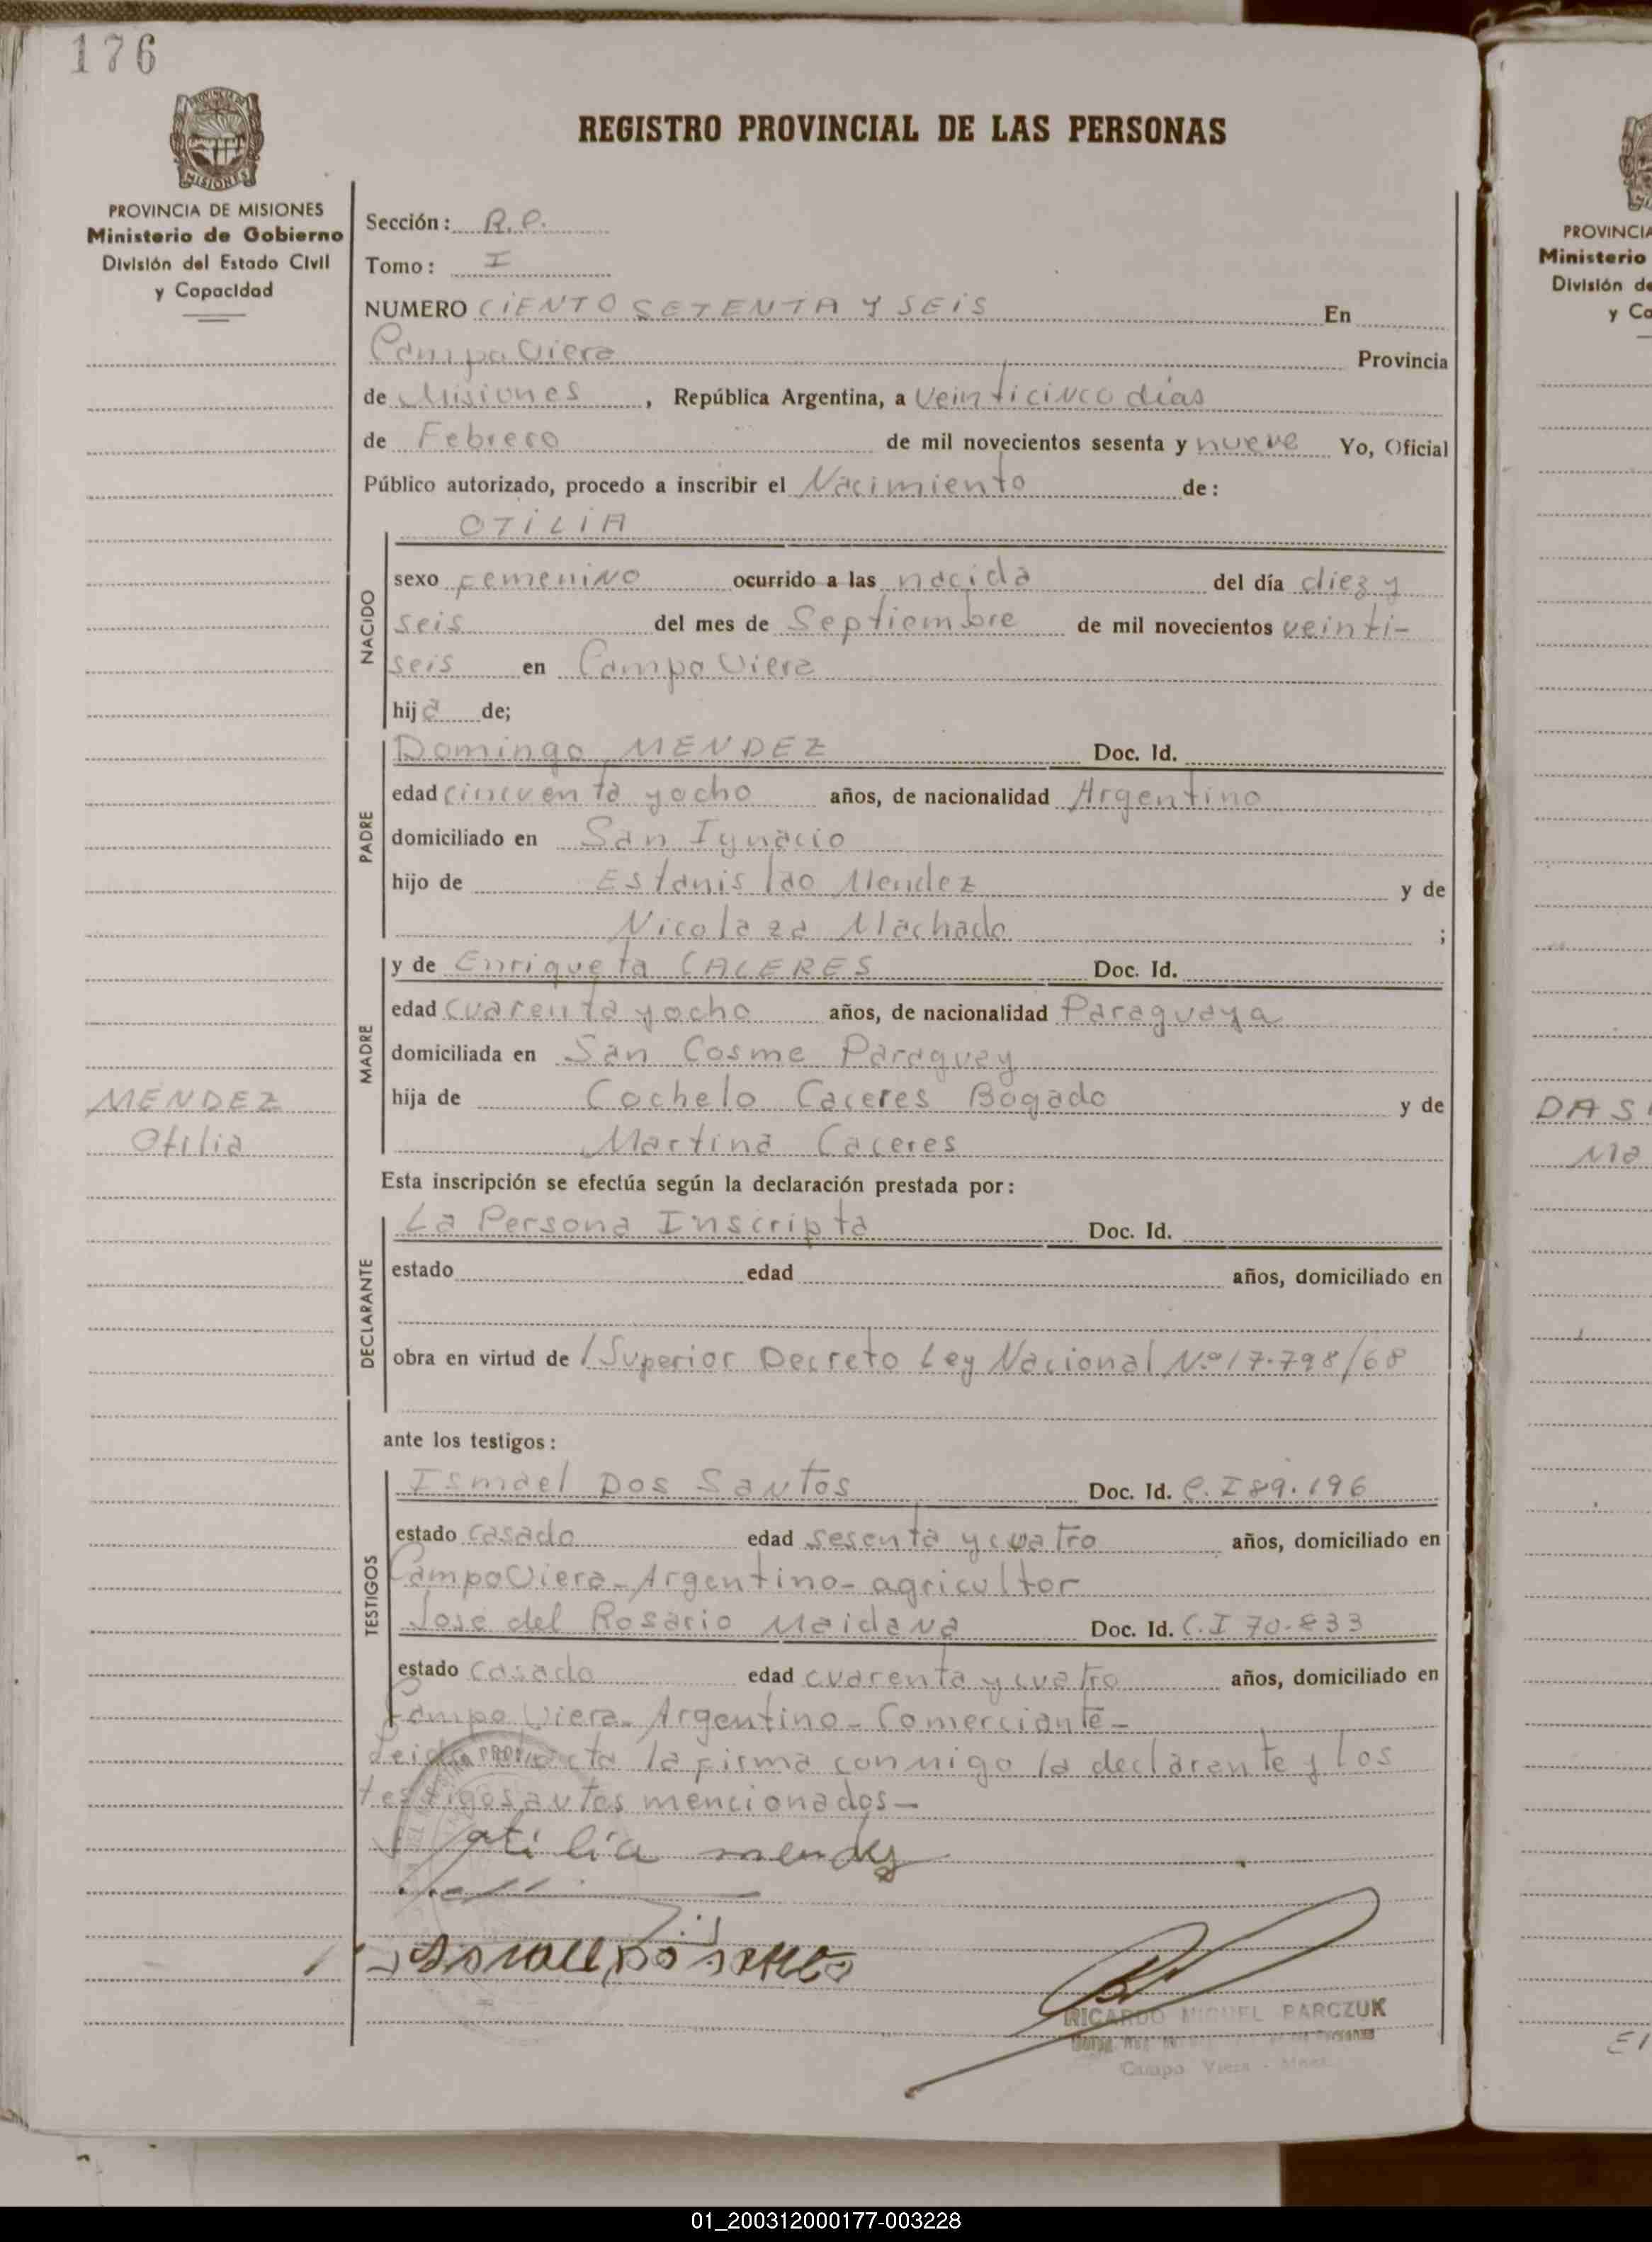 176
PROVINCIA DE MISIONES
MISIONES
REGISTRO PROVINCIAL DE LAS PERSONAS
PROVINCIA DE MISIONES
Ministerio de Gobierno
División del Estado Civil
y Capacidad
Sección: R.P.
Tomo: I
NUMERO CIENTO SETENTA Y SEIS En
Campo Viera Provincia
de Misiones, República Argentina, a Veinticinco días
de Febrero de mil novecientos sesenta y nueve Yo, Oficial
Público autorizado, procedo a inscribir el Nacimiento de:
OTILIA
NACIDO
sexo femenino ocurrido a las nacida del día diez y
seis del mes de Septiembre de mil novecientos veinti-
seis en Campo Viera
hija de;
PADRE
Domingo MENDEZ Doc. Id.
edad cincuenta y ocho años, de nacionalidad Argentino
domiciliado en San Ignacio
hijo de Estanislao Mendez y de
Nicolaza Machado ;
MADRE
y de Enriqueta CACERES Doc. Id.
edad cuarenta y ocho años, de nacionalidad Paraguaya
domiciliada en San Cosme Paraguay
hija de Cochelo Caceres Bogado y de
Martina Caceres
MENDEZ
Otilia
Esta inscripción se efectúa según la declaración prestada por:
DECLARANTE
La Persona Inscripta Doc. Id.
estado edad años, domiciliado en
obra en virtud de /Superior Decreto Ley Nacional Nº 17.798/68
ante los testigos:
TESTIGOS
Ismael Dos Santos Doc. Id. C.I 89.196
estado casado edad sesenta y cuatro años, domiciliado en
Campo Viera-Argentino-agricultor
José del Rosario Maidana Doc. Id. C.I 70.833
estado Casado edad cuarenta y cuatro años, domiciliado en
Campo Viera-Argentino-Comerciante-
Leida el acta la firma conmigo la declarente y los
testigos antes mencionados-
otilia mendez
RICARDO MIGUEL BARCZUK
Campo Viera - Mnes.
PROVINCIA
Ministerio
División de
y Ca
DAS
Ma
El
01_200312000177-003228